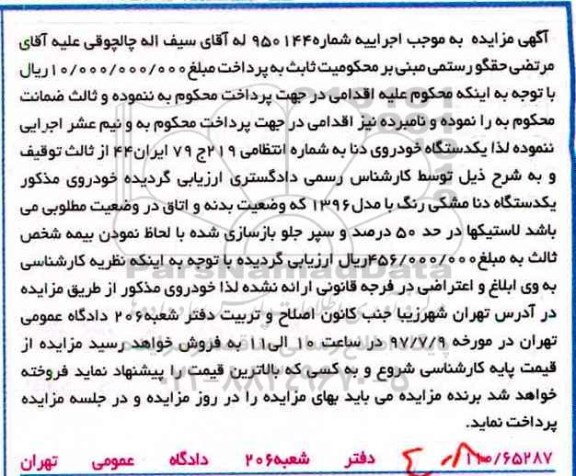 آگهی مزایده به موجب اجراییه شماره۹۵۰۱۴۴ له آقای سیف اله چالچوقی علیه آقای
مرتضی حقگو رستمی مبنی بر محکومیت ثابت به پرداخت مبلغ۱۰/۰۰۰/۰۰۰/۰۰۰ریال
با توجه به اینکه محکوم علیه اقدامی در جهت پرداخت محکوم به ننموده و ثالث ضمانت
محکوم به را نموده و نامبرده نیز اقدامی در جهت پرداخت محکوم به و نیم عشر اجرایی
ننموده لذا یکدستگاه خودروی دنا به شماره انتظامی ۲۱۹ج ۷۹ ایران۴۴ از ثالث توقیف
و به شرح ذیل توسط کارشناس رسمی دادگستری ارزیابی گردیده خودروی مذکور
یکدستگاه دنا مشکی رنگ با مدل۱۳۹۶ که وضعیت بدنه و اتاق در وضعیت مطلوبی می
باشد لاستیکها در حد ۵۰ درصد و سپر جلو بازسازی شده با لحاظ نمودن بیمه شخص
ثالث به مبلغ۴۵۶/۰۰۰/۰۰۰ریال ارزیابی گردیده با توجه به اینکه نظریه کارشناسی
به وی ابلاغ و اعتراضی در فرجه قانونی ارائه نشده لذا خودروی مذکور از طریق مزایده
در آدرس تهران شهرزیبا جنب کانون اصلاح و تربیت دفتر شعبه۲۰۶ دادگاه عمومی
تهران در مورخه ۹۷/۷/۹ در ساعت ۱۰ الی۱۱ به فروش خواهد رسید مزایده از
قیمت پایه کارشناسی شروع و به کسی که بالاترین قیمت را پیشنهاد نماید فروخته
خواهد شد برنده مزایده می باید بهای مزایده را در روز مزایده و در جلسه مزایده
پرداخت نماید.
۱۱۰/۶۵۲۸۷ دفتر شعبه۲۰۶ دادگاه عمومی تهران
ParsNamadData
۰۲۱-۸۸۳۴۹۶۷۰-۵